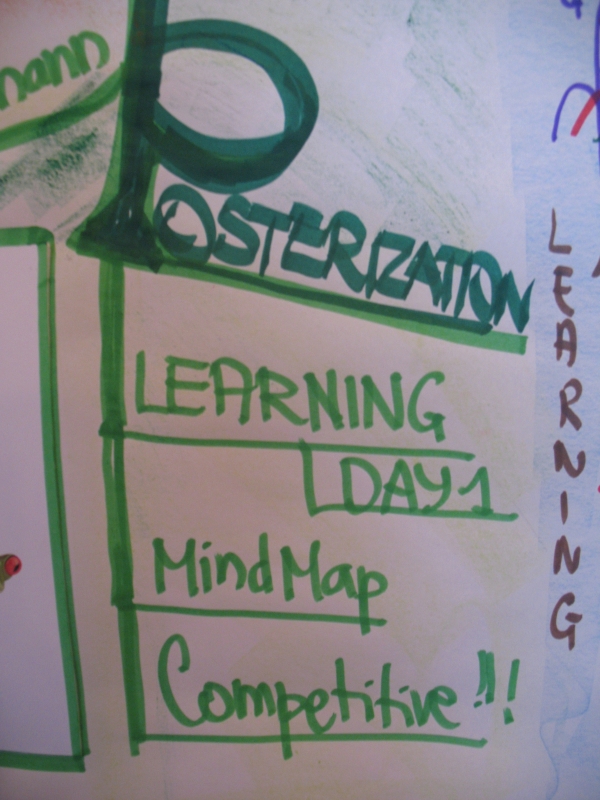 POSTERIZATION
LEARNING
DAY 1
MindMap
Competitive!!!
LEARNING